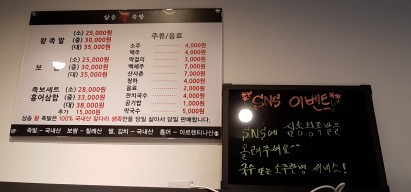 삼송 왕 족발
왕 족 발
(소) 25,000원
(중) 30,000원
(대) 35,000원
보
(소) 25,000원
(중) 30,000원
(대) 35,000원
족보세트
홍어삼합
(소) 28,000원
(중) 33,000원
(대) 38,000원
추가 15,000원
주류/음료
소주 4,000원
맥주 4,000원
막걸리 3,000원
백세주 7,000원
산사춘 7,000원
청하 4,000원
음료 2,000원
잔치국수 4,000원
공기밥 1,000원
막국수 5,000원
족발 – 국내산 보쌈 – 칠레산 쌀, 김치 – 국내산 홍어 – 아르헨티나산
SNS 이벤트
SNS에
올려주세요^^
국수 또는 소주한병 서비스!